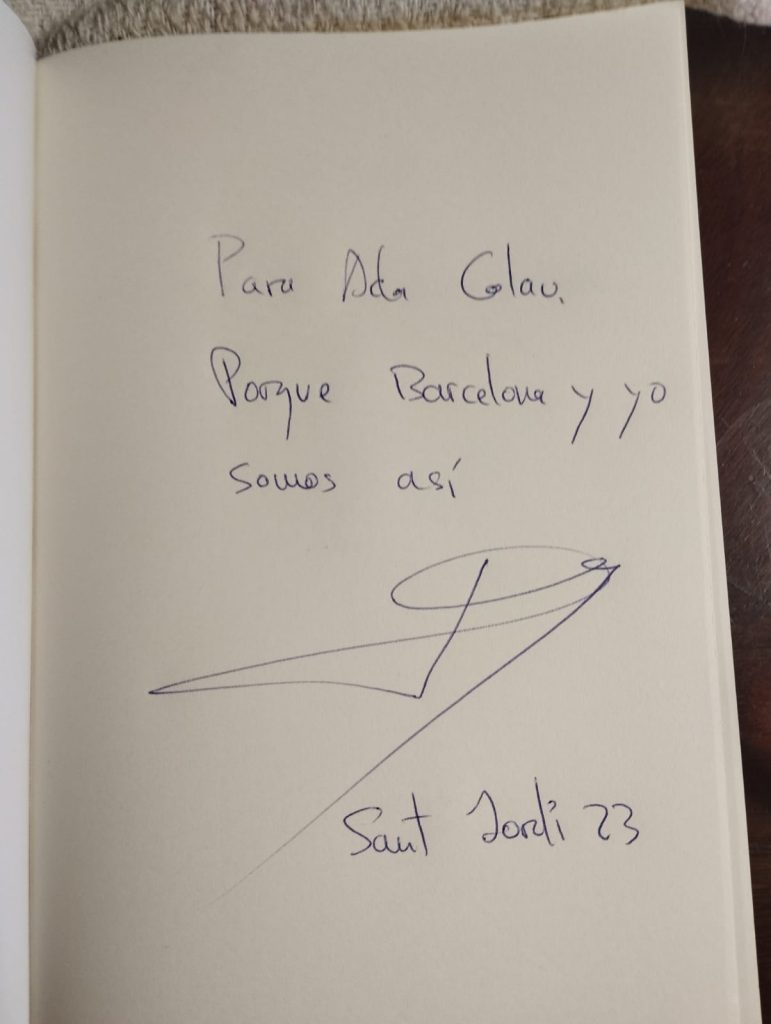 Para Ada Colau.
Porque Barcelona y yo
somos así
Sant Jordi 23